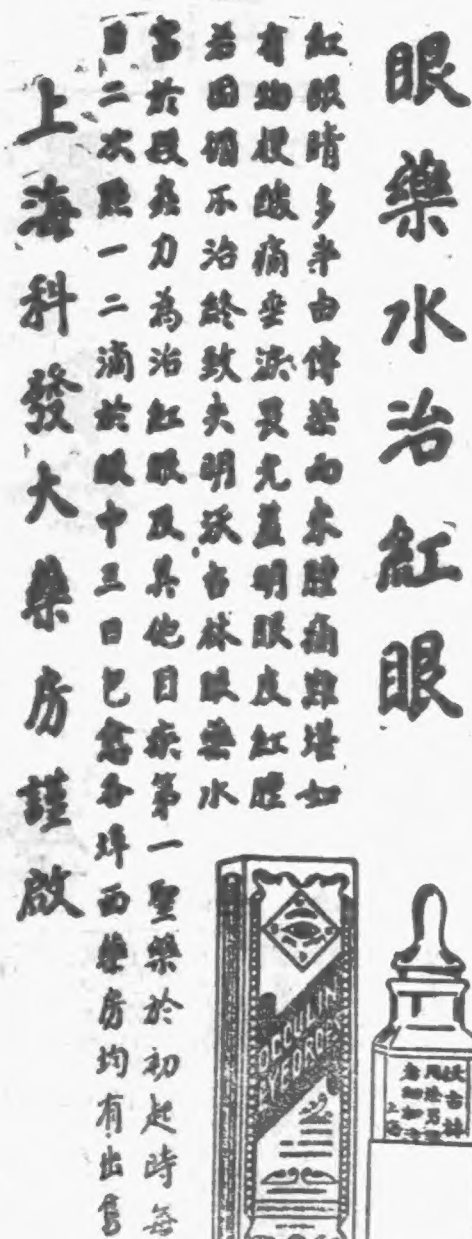 眼藥水治紅眼
紅眼睛多半由傳染而來腫痛難堪如
有物梗酸痛垂淚畏光羞明眼皮紅腫
若因循不治終致失明沃古林眼藥水
富於殺菌力為治紅眼及其他目疾第一聖藥於初起時每
日二次點一二滴於眼中三日包愈各埠西藥房均有出售
上海科發大藥房謹啟
OCCULIN
EYEDROPS
沃古林